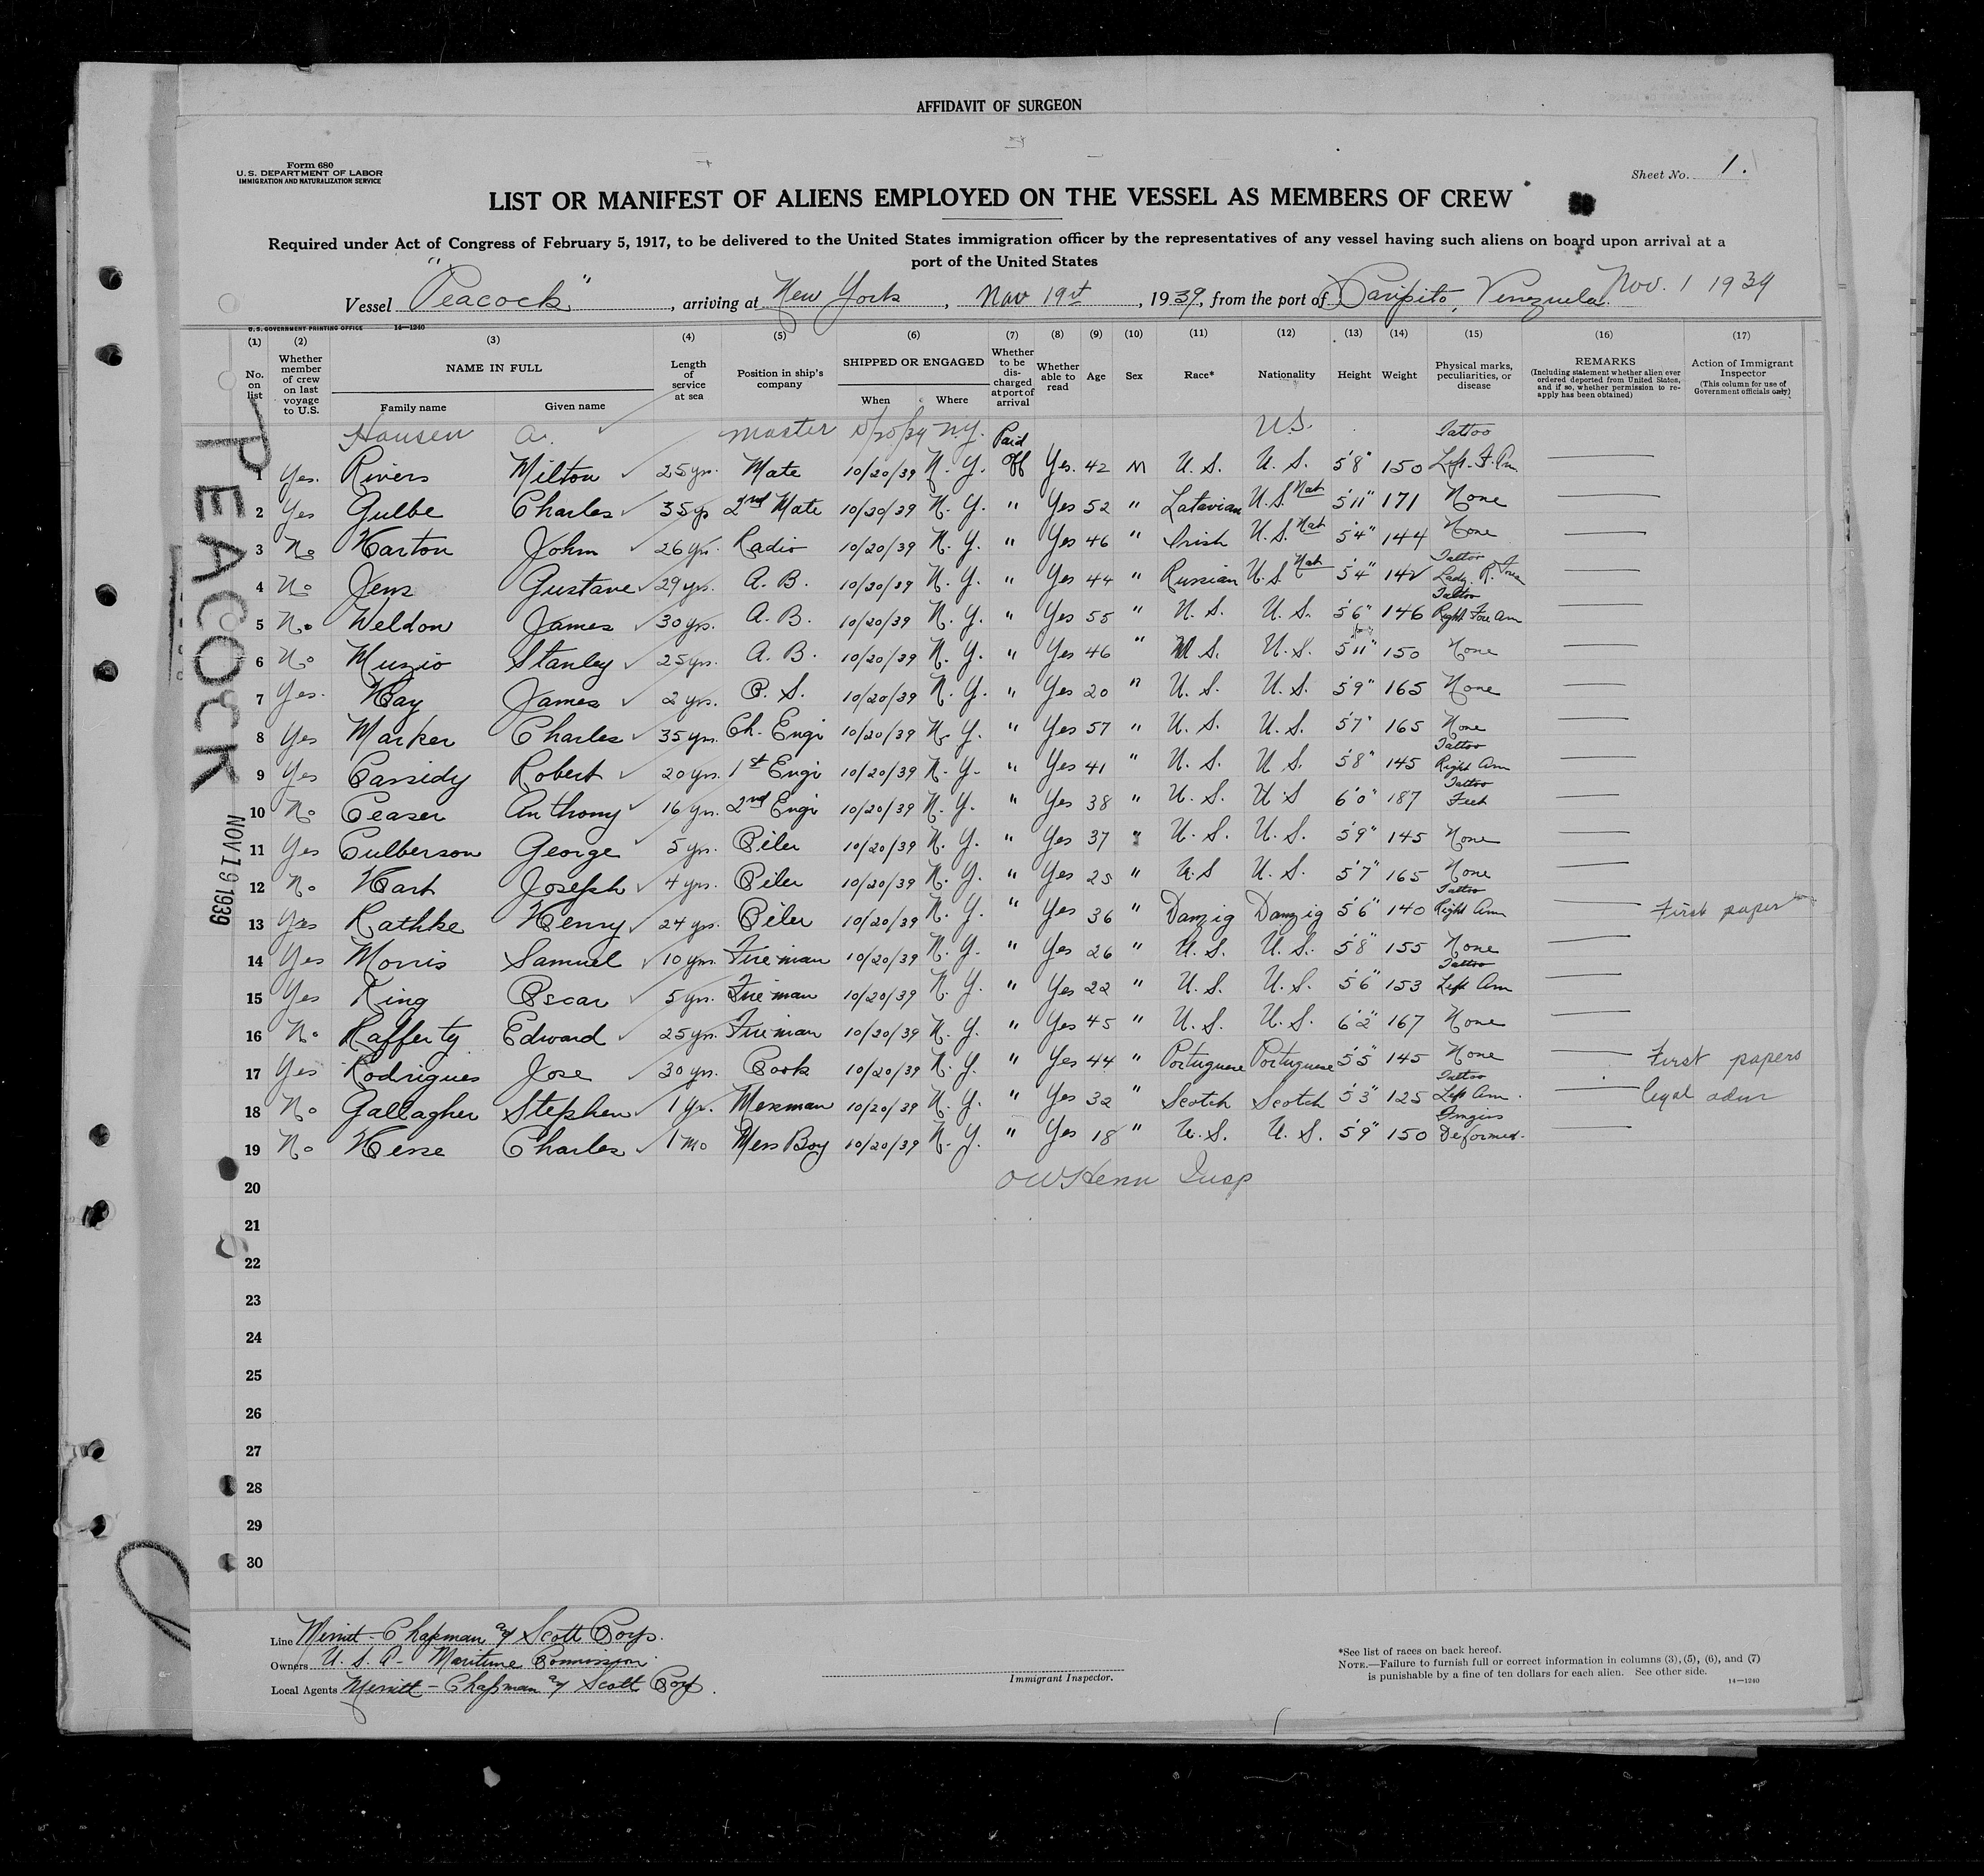 AFFIDAVIT OF SURGEON
Form 680
U.S. DEPARTMENT OF LABOR
IMMIGRATION AND NATURALIZATION SERVICE
Sheet No. 1.
LIST OR MANIFEST OF ALIENS EMPLOYED ON THE VESSEL AS MEMBERS OF CREW
Required under Act of Congress of February 5, 1917, to be delivered to the United States immigration officer by the representatives of any vessel having such aliens on board upon arrival at a
port of the United States
Vessel "Peacock", arriving at New York, Nov 19st, 1939, from the port of Caripito, Venezuela. Nov. 1 1939
U.S. GOVERNMENT PRINTING OFFICE 14—1240
(1) (2) (3) (4) (5) (6) (7) (8) (9) (10) (11) (12) (13) (14) (15) (16) (17)
No. on list
Whether member of crew on last voyage to U.S.
NAME IN FULL
Family name Given name
Length of service at sea
Position in ship's company
SHIPPED OR ENGAGED
When Where
Whether to be discharged at port of arrival
Whether able to read
Age
Sex
Race*
Nationality
Height
Weight
Physical marks, peculiarities, or disease
REMARKS
(Including statement whether alien ever ordered deported from United States, and if so, whether permission to reapply has been obtained)
Action of Immigrant Inspector
(This column for use of Government officials only)
Hansen A. Master N.Y. U.S.
1 Yes. Rivers Milton 25 yrs. Mate 10/20/39 N. Y. Paid Off Yes. 42 M U. S. U. S. 5'8" 150 Tattoo Left. F. Am
2 Yes Gulbe Charles 35 yrs 2nd Mate 10/20/39 N. Y. " Yes 52 " Latavian U.S. Nat 5'11" 171 None
3 No Harton John 26 yrs. Radio 10/20/39 N. Y. " Yes 46 " Irish U.S. Nat 5'4" 144 None
4 No Jens Gustave 29 yrs. A. B. 10/20/39 N. Y. " Yes 44 " Russian U.S. Nat 5'4" 142 Tattoo Lady. R.
5 No Weldon James 30 yrs. A. B. 10/20/39 N. Y. " Yes 55 " U. S. U. S. 5'6" 146 Tattoo Right Fore Am
6 No Muzio Stanley 25 yrs. A. B. 10/20/39 N. Y. " Yes 46 " U. S. U. S. 5'11" 150 None
7 Yes. Hay James 2 yrs. O. S. 10/20/39 N. Y. " Yes 20 " U. S. U. S. 5'9" 165 None
8 Yes Marker Charles 35 yrs. Ch. Engr 10/20/39 N. Y. " Yes 57 " U. S. U. S. 5'7" 165 None
9 Yes Cassidy Robert 20 yrs. 1st Engr 10/20/39 N. Y. " Yes 41 " U. S. U. S. 5'8" 145 Tattoo Right Arm
10 No Ceaser Anthony 16 yrs. 2nd Engr 10/20/39 N. Y. " Yes 38 " U. S. U. S 6'0" 187 Tattoo Feet
11 Yes Culberson George 5 yrs. Oiler 10/20/39 N. Y. " Yes 37 " U. S. U. S. 5'9" 145 None
12 No Hart Joseph 4 yrs. Oiler 10/20/39 N. Y. " Yes 25 " U. S U. S. 5'7" 165 None
13 Yes Rathke Henry 24 yrs. Oiler 10/20/39 N. Y. " Yes 36 " Danzig Danzig 5'6" 140 Tattoo Right Arm First paper
14 Yes Morris Samuel 10 yrs. Fireman 10/20/39 N. Y. " Yes 26 " U. S. U. S. 5'8" 155 None
15 Yes King Oscar 5 yrs. Fireman 10/20/39 N. Y. " Yes 22 " U. S. U. S. 5'6" 153 Tattoo Left Arm
16 No Rafferty Edward 25 yrs. Fireman 10/20/39 N. Y. " Yes 45 " U. S. U. S. 6'2" 167 None
17 Yes Rodrigues Jose 30 yrs. Cook 10/20/39 N. Y. " Yes 44 " Portuguese Portuguese 5'5" 145 None First papers
18 No Gallagher Stephen 1 yr. Mesman 10/20/39 N. Y. " Yes 32 " Scotch Scotch 5'3" 125 Tattoo Left Arm. legal adm
19 No Hesse Charles 1 mo Mess Boy 10/20/39 N. Y. " Yes 18 " U. S. U. S. 5'9" 150 Fingers Deformed.
20 Insp
21
22
23
24
25
26
27
28
29
30
PEACOCK
NOV 19 1939
Line Merritt-Chapman & Scott Corp.
Owners U. S. A- Maritime Commission.
Local Agents Merritt-Chapman & Scott Corp.
Immigrant Inspector.
*See list of races on back hereof.
NOTE.—Failure to furnish full or correct information in columns (3), (5), (6), and (7)
is punishable by a fine of ten dollars for each alien. See other side.
14—1240